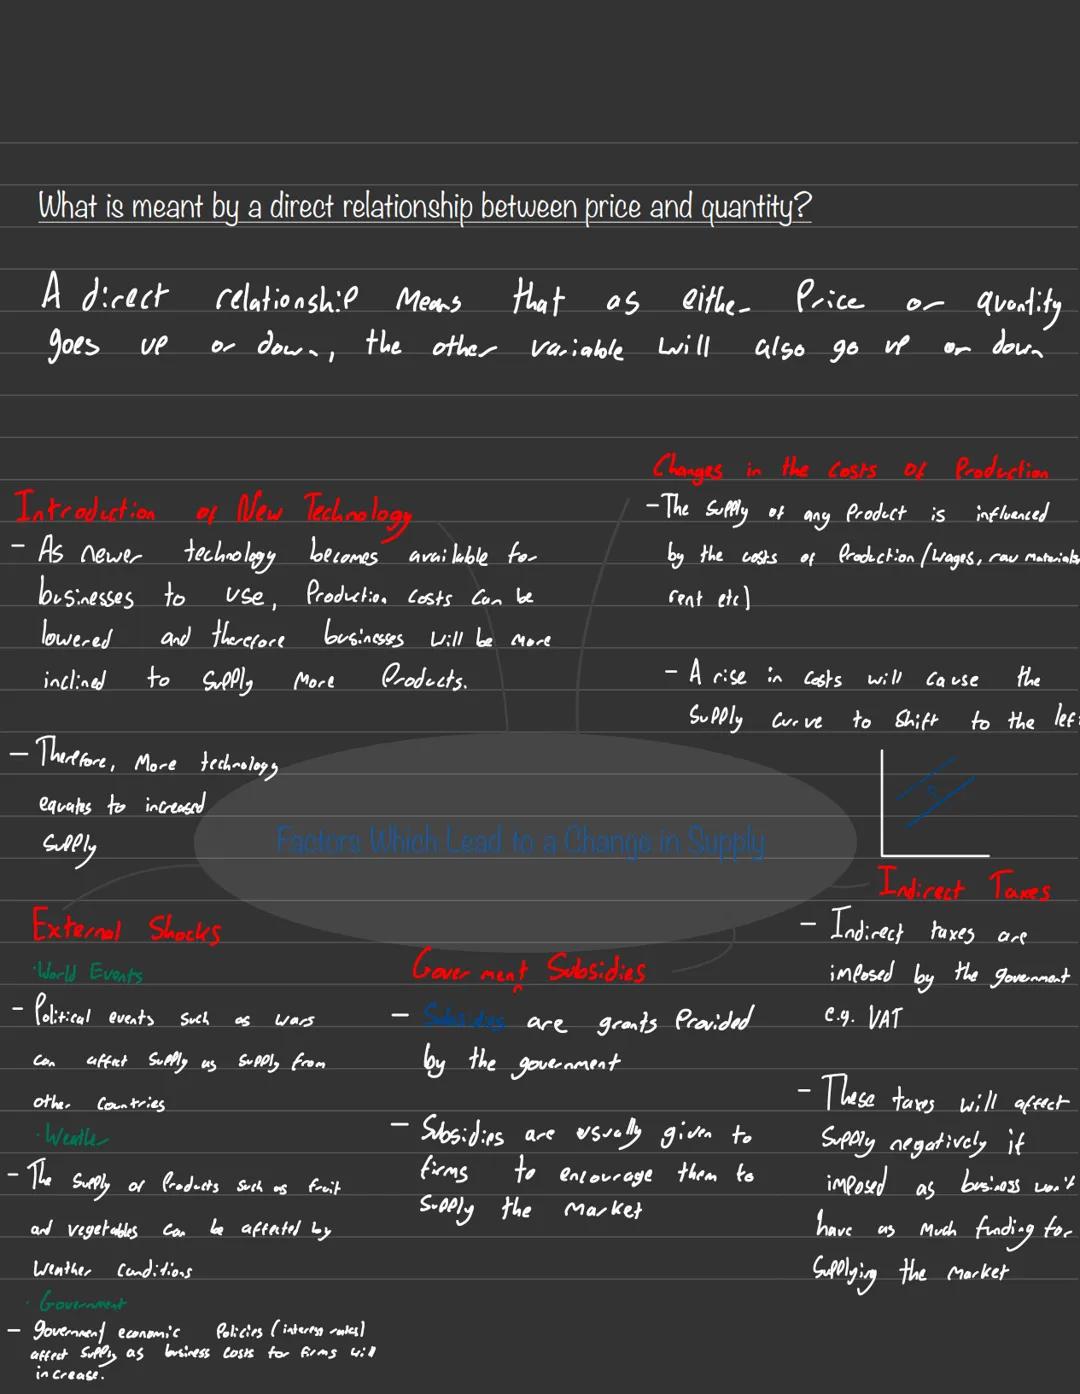 What is meant by a direct relationship between price and quantity?
A direct relationship means that as either Price or quantity
goes up or down, the other variable will also go up or down
Changes in the Costs of Production
- The supply of any Product is influenced
by the costs of Production (wages, raw materials
rent etc)
- A rise in costs will cause the
supply curve to shift to the left
S
Introduction of New Technology
- As newer technology becomes available for
businesses to use, Production costs can be
lowered and therefore businesses will be more
inclined to supply more Products.
- Therefore, more technology
equates to increased
supply
Factors Which Lead to a Change in Supply
External Shocks
·World Events
- Political events such as wars
can affect supply as supply from
other countries
·Weather
- The supply of Products such as fruit
and vegetables can be affected by
weather conditions
·Government
- government economic Policies (interest rates)
affect supply as business costs for firms will
increase.
Government Subsidies
- Subsidies are grants Provided
by the government
- Subsidies are usually given to
firms to encourage them to
supply the market
Indirect Taxes
- Indirect taxes are
imposed by the government
e.g. VAT
- These taxes will affect
supply negatively if
imposed as business won't
have as much funding for
supplying the market